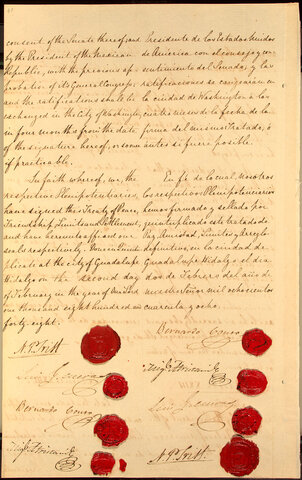 consent of the Senate thereof; and
by the President of the Mexican
Republic, with the previous ap-
probation of its General Congress;
and the ratifications shall be
exchanged in the City of Washington,
in four months from the date
of the signature hereof, or sooner
if practicable.
In faith whereof, we, the
respective Plenipotentiaries,
have signed this Treaty of Peace,
Friendship, Limits and Settlement,
and have hereunto affixed our
seals respectively. Done in Quintu-
plicate at the City of Guadalupe
Hidalgo on the second day
of February in the year of Our Lord
one thousand eight hundred and
forty eight.
N. P. Trist
Luis G. Cuevas
Bernardo Couto
Migl Atristain
Presidente de los Estados Unidos
de America con el consejo y con-
sentimiento del Senado, y las
ratificaciones se canjearan en
la ciudad de Washington a los
cuatro meses de la fecha de la
firma del mismo Tratado, ó
antes si fuere posible.
En fe de lo cual, nosotros
los respectivos Plenipotenciarios
hemos firmado y sellado por
quintuplicado este tratado de
Paz, Amistad, Limites y Arreglo
definitivo, en la ciudad de
Guadalupe Hidalgo el dia
dos de Febrero del año de
nuestro Señor mil ochocientos
cuarenta y ocho.
Bernardo Couto
Migl Atristain
Luis G. Cuevas
N. P. Trist